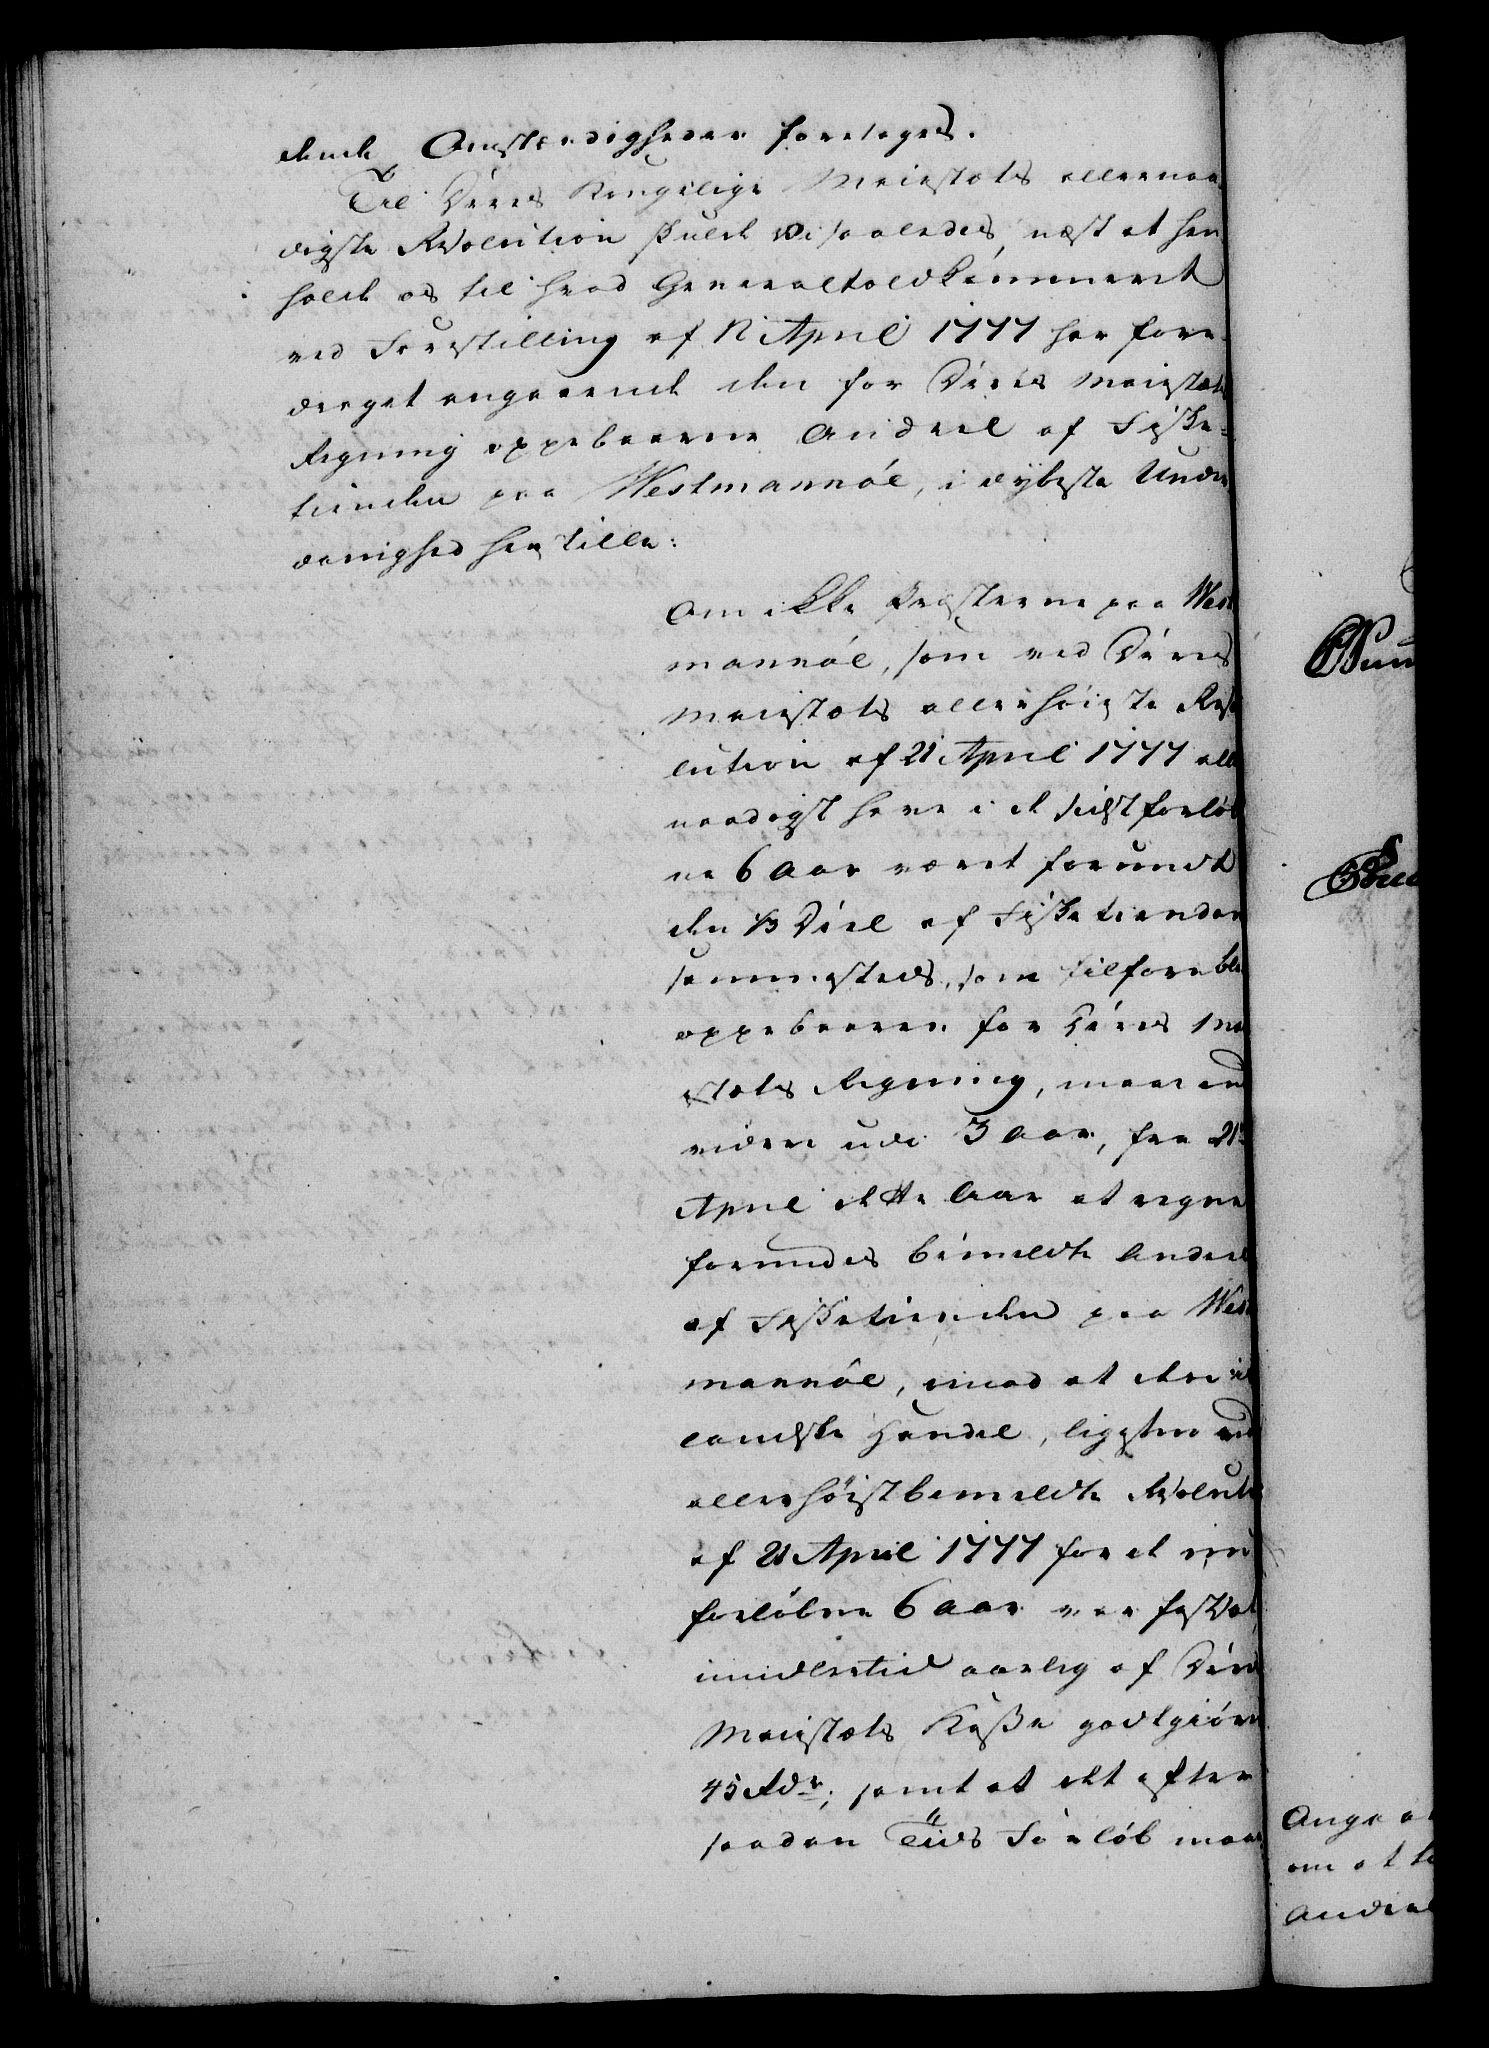 dende Omstændigheder foretages.
Til Deres Kongelige Maiestæts allernaa-
digste Resolution skulde Vi saaledes, næst at hen
holde os til hvad Generaltoldkammeret
ved Forestilling af 12 April 1777 har fore-
draget angaaende den for Deres Maiestæts
Regning oppebaarne Andeel af Fiske-
tienden paa Westmannöe, i dybeste Under
danighed henstille:
Om ikke Præsterne paa West
mannöe, som ved Deres
Maiestæts allerhöieste Reso
lution af 21 April 1777 aller
naadigst have i de sidst forlöb
ne 6 Aar været forundt
den 1/3 Deel af Fisketienden
sammesteds, som tilforn blev
oppebaaren for Deres Mai
estæts Regning, maae end
videre udi 3 Aar, fra 21de
April dette Aar at regne
forundes bemeldte Andeel
af Fisketienden paa West
mannöe, imod at den is
landske Handel, ligesom ved
allerhöistbemeldte Resoluti
af 21 April 1777 for de nu
forlöbne 6 Aar var fastsat,
imidlertid aarlig af Deres
Maiestæts Kasse godtgiöres
45 Rdr; samt at det efter
saadan Tiids Forlöb maae
Angaa
om at
Andeel